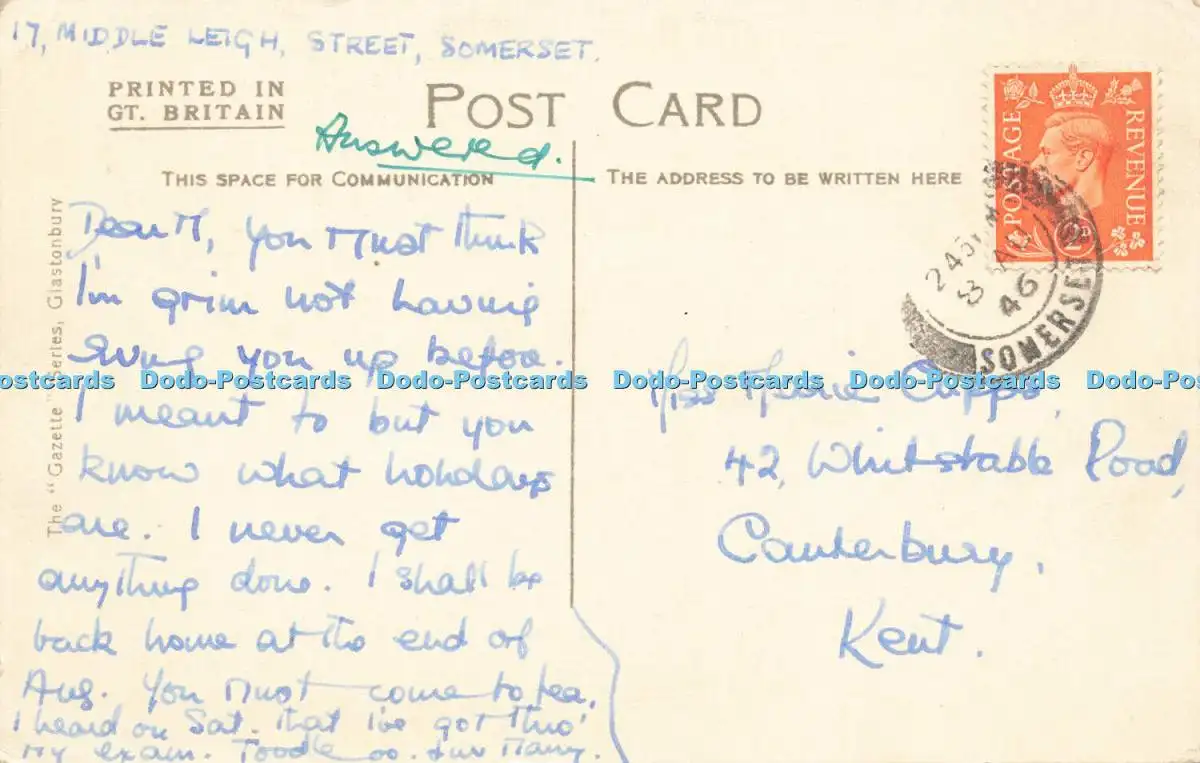 17, MIDDLE LEIGH, STREET, SOMERSET.
PRINTED IN
GT. BRITAIN
POST CARD
Answered.
THIS SPACE FOR COMMUNICATION
THE ADDRESS TO BE WRITTEN HERE
POSTAGE REVENUE
2 45 PM
46
SOMERSET
The "Gazette" Series, Glastonbury
Dear M, you must think
I'm grim not having
rung you up before.
I meant to but you
know what holidays
are. I never get
anything done. I shall be
back home at the end of
Aug. You must come to tea.
I heard on Sat. that I've got thro'
my exam. Toodle oo.
Miss
42, Whitstable Road,
Canterbury,
Kent.
Dodo-Postcards Dodo-Postcards Dodo-Postcards Dodo-Postcards Dodo-Postcards Dodo-Postcards